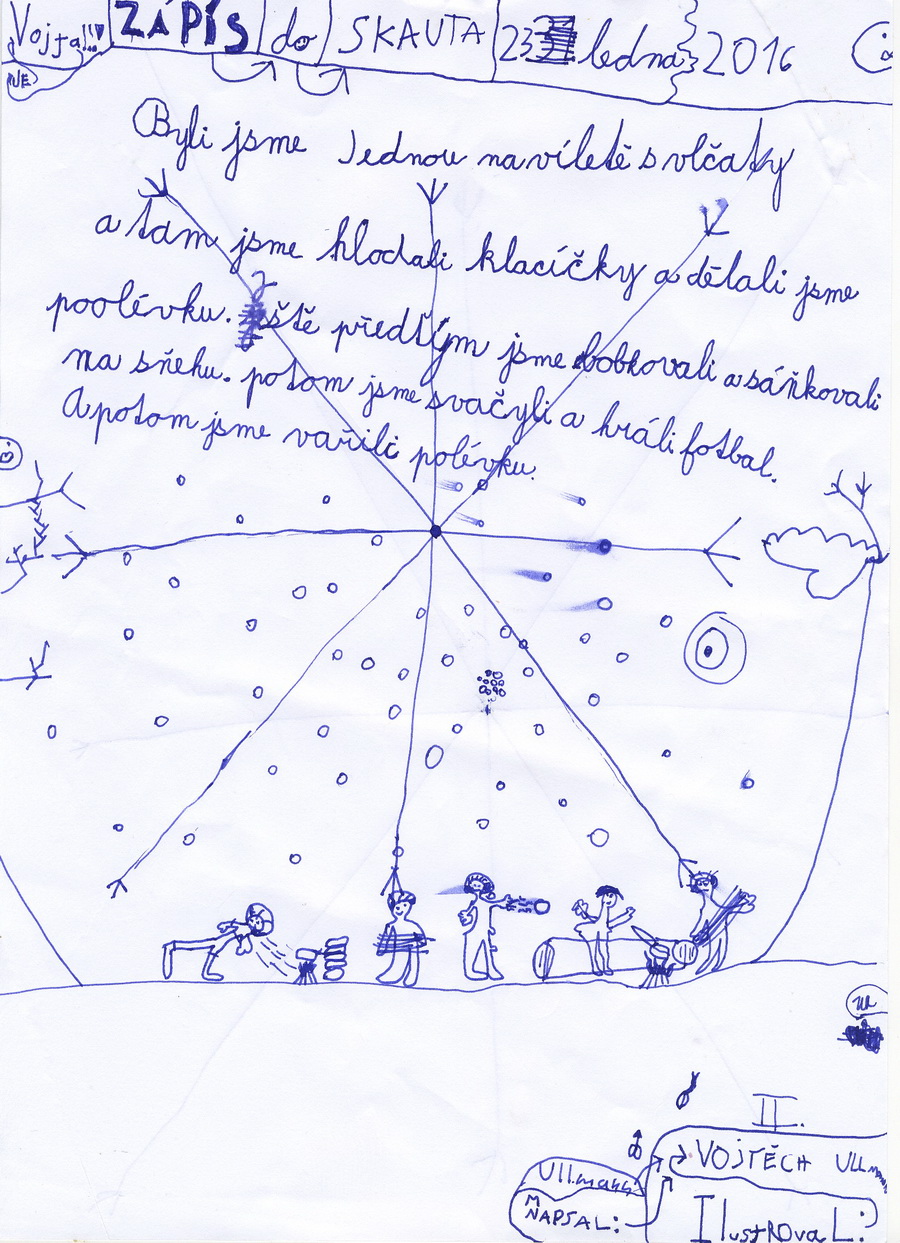 Vojta!!! ZÁPIS do SKAUTA 23 ledna 2016
Byli jsme Jednou navíletě s vlčaty
a tam jsme hlodali klacíčky a dělali jsme
poolévku. ště předtým jsme bobkovali a sáňkovali
na sňehu. potom jsme svačyli a hráli fotbal.
A potom jsme vařili polévku.
II.
VOJTĚCH Ullmann
Ullmann
NAPSAL:
IlustROvaL: